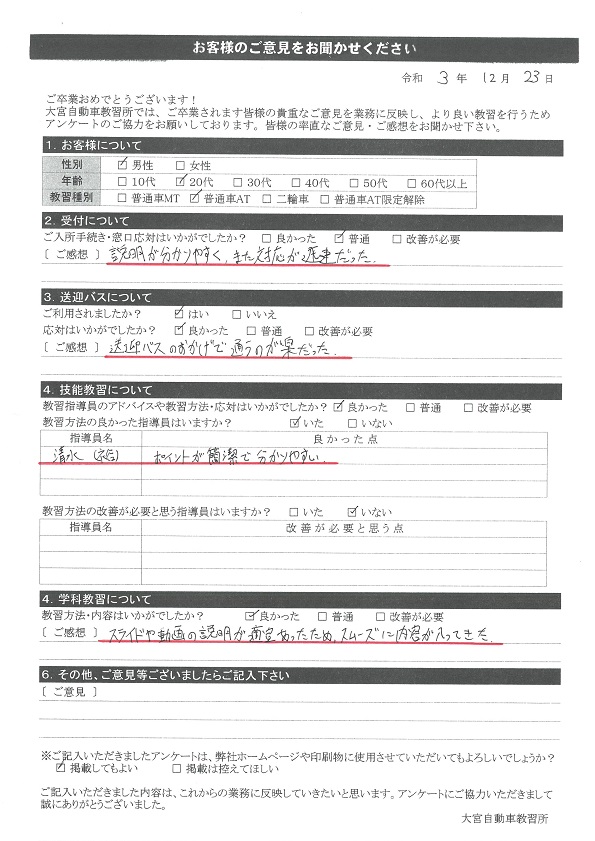 お客様のご意見をお聞かせください
令和 3 年 12 月 23 日
ご卒業おめでとうございます！
大宮自動車教習所では、ご卒業されます皆様の貴重なご意見を業務に反映し、より良い教習を行うため
アンケートのご協力をお願いしております。皆様の率直なご意見・ご感想をお聞かせ下さい。
1. お客様について
性別 ☑ 男性 □ 女性
年齢 □ 10代 ☑ 20代 □ 30代 □ 40代 □ 50代 □ 60代以上
教習種別 □ 普通車MT ☑ 普通車AT □ 二輪車 □ 普通車AT限定解除
2. 受付について
ご入所手続き・窓口応対はいかがでしたか？ □ 良かった ☑ 普通 □ 改善が必要
［ ご感想 ］ 説明が分かりやすく、また対応が迅速だった。
3. 送迎バスについて
ご利用されましたか？ ☑ はい □ いいえ
応対はいかがでしたか？ ☑ 良かった □ 普通 □ 改善が必要
［ ご感想 ］ 送迎バスのおかげで通うのが楽だった。
4. 技能教習について
教習指導員のアドバイスや教習方法・応対はいかがでしたか？ ☑ 良かった □ 普通 □ 改善が必要
教習方法の良かった指導員はいますか？ ☑ いた □ いない
指導員名 良かった点
清水 ポイントが簡潔で分かりやすい。
教習方法の改善が必要と思う指導員はいますか？ □ いた ☑ いない
指導員名 改善が必要と思う点
4. 学科教習について
教習方法・内容はいかがでしたか？ ☑ 良かった □ 普通 □ 改善が必要
［ ご感想 ］ スライドや動画の説明が適宜あったため、スムーズに内容が入ってきた。
6. その他、ご意見等ございましたらご記入下さい
［ ご意見 ］
※ご記入いただきましたアンケートは、弊社ホームページや印刷物に使用させていただいてもよろしいでしょうか？
☑ 掲載してもよい □ 掲載は控えてほしい
ご記入いただきました内容は、これからの業務に反映していきたいと思います。アンケートにご協力いただきまして
誠にありがとうございました。
大宮自動車教習所